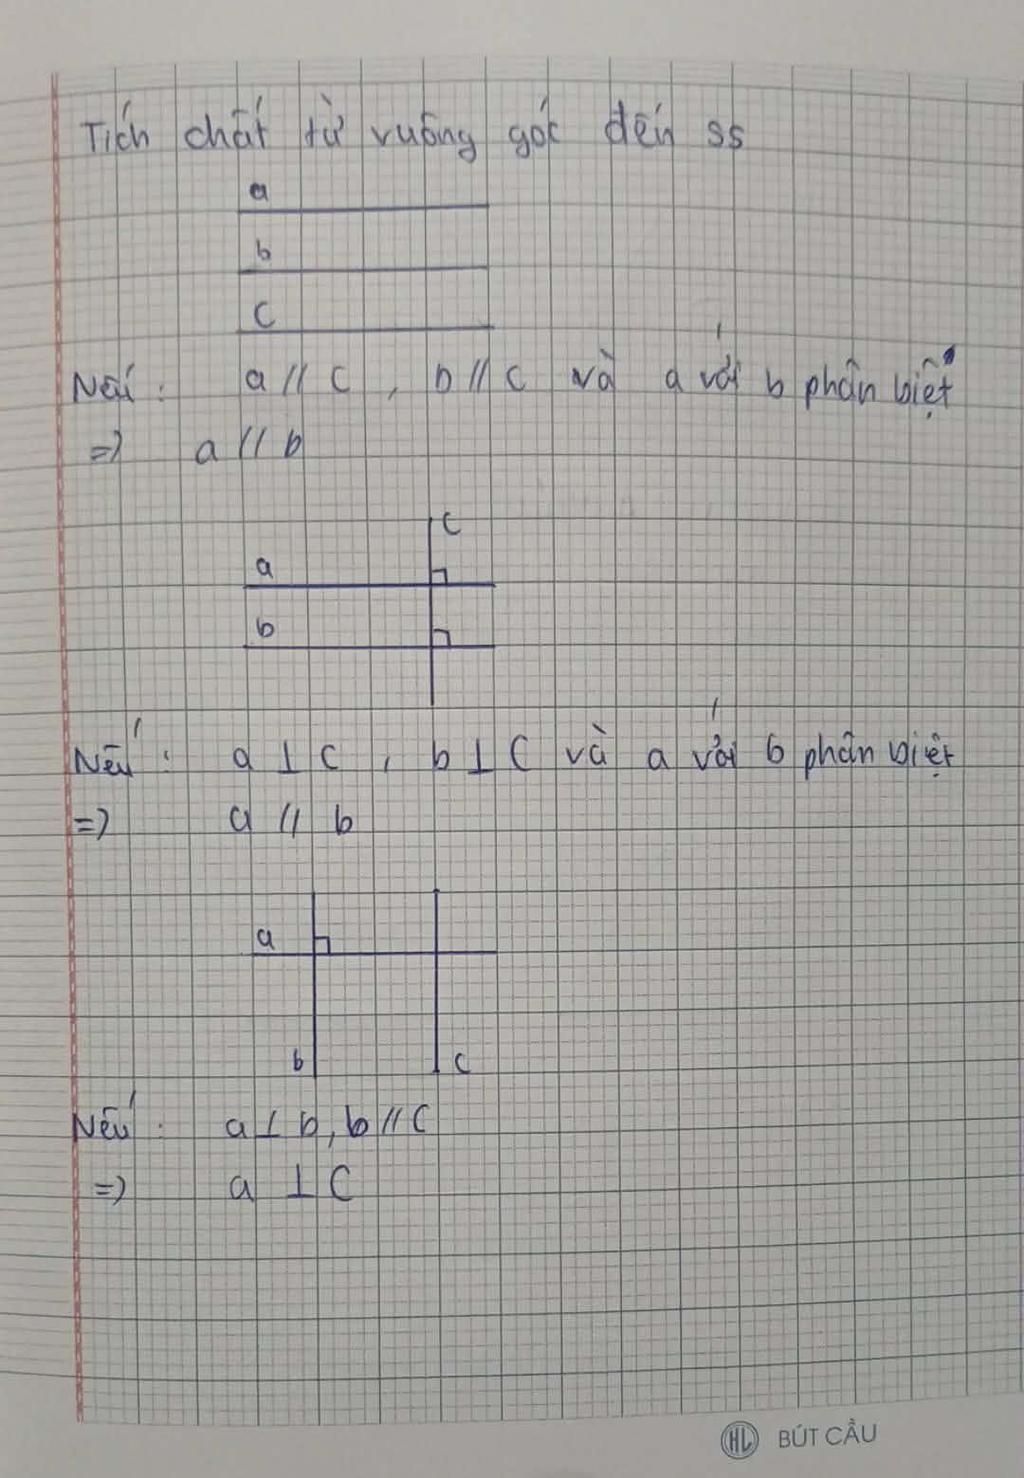 Tích chất từ vuông góc đến ss
a
b
c
Nếu : a // c , b // c và a với b phân biệt
=> a // b
c
a
b
Nếu : a ⊥ c , b ⊥ c và a với b phân biệt
=> a // b
a
b c
Nếu : a ⊥ b, b // c
=> a ⊥ c
HL BÚT CẦU